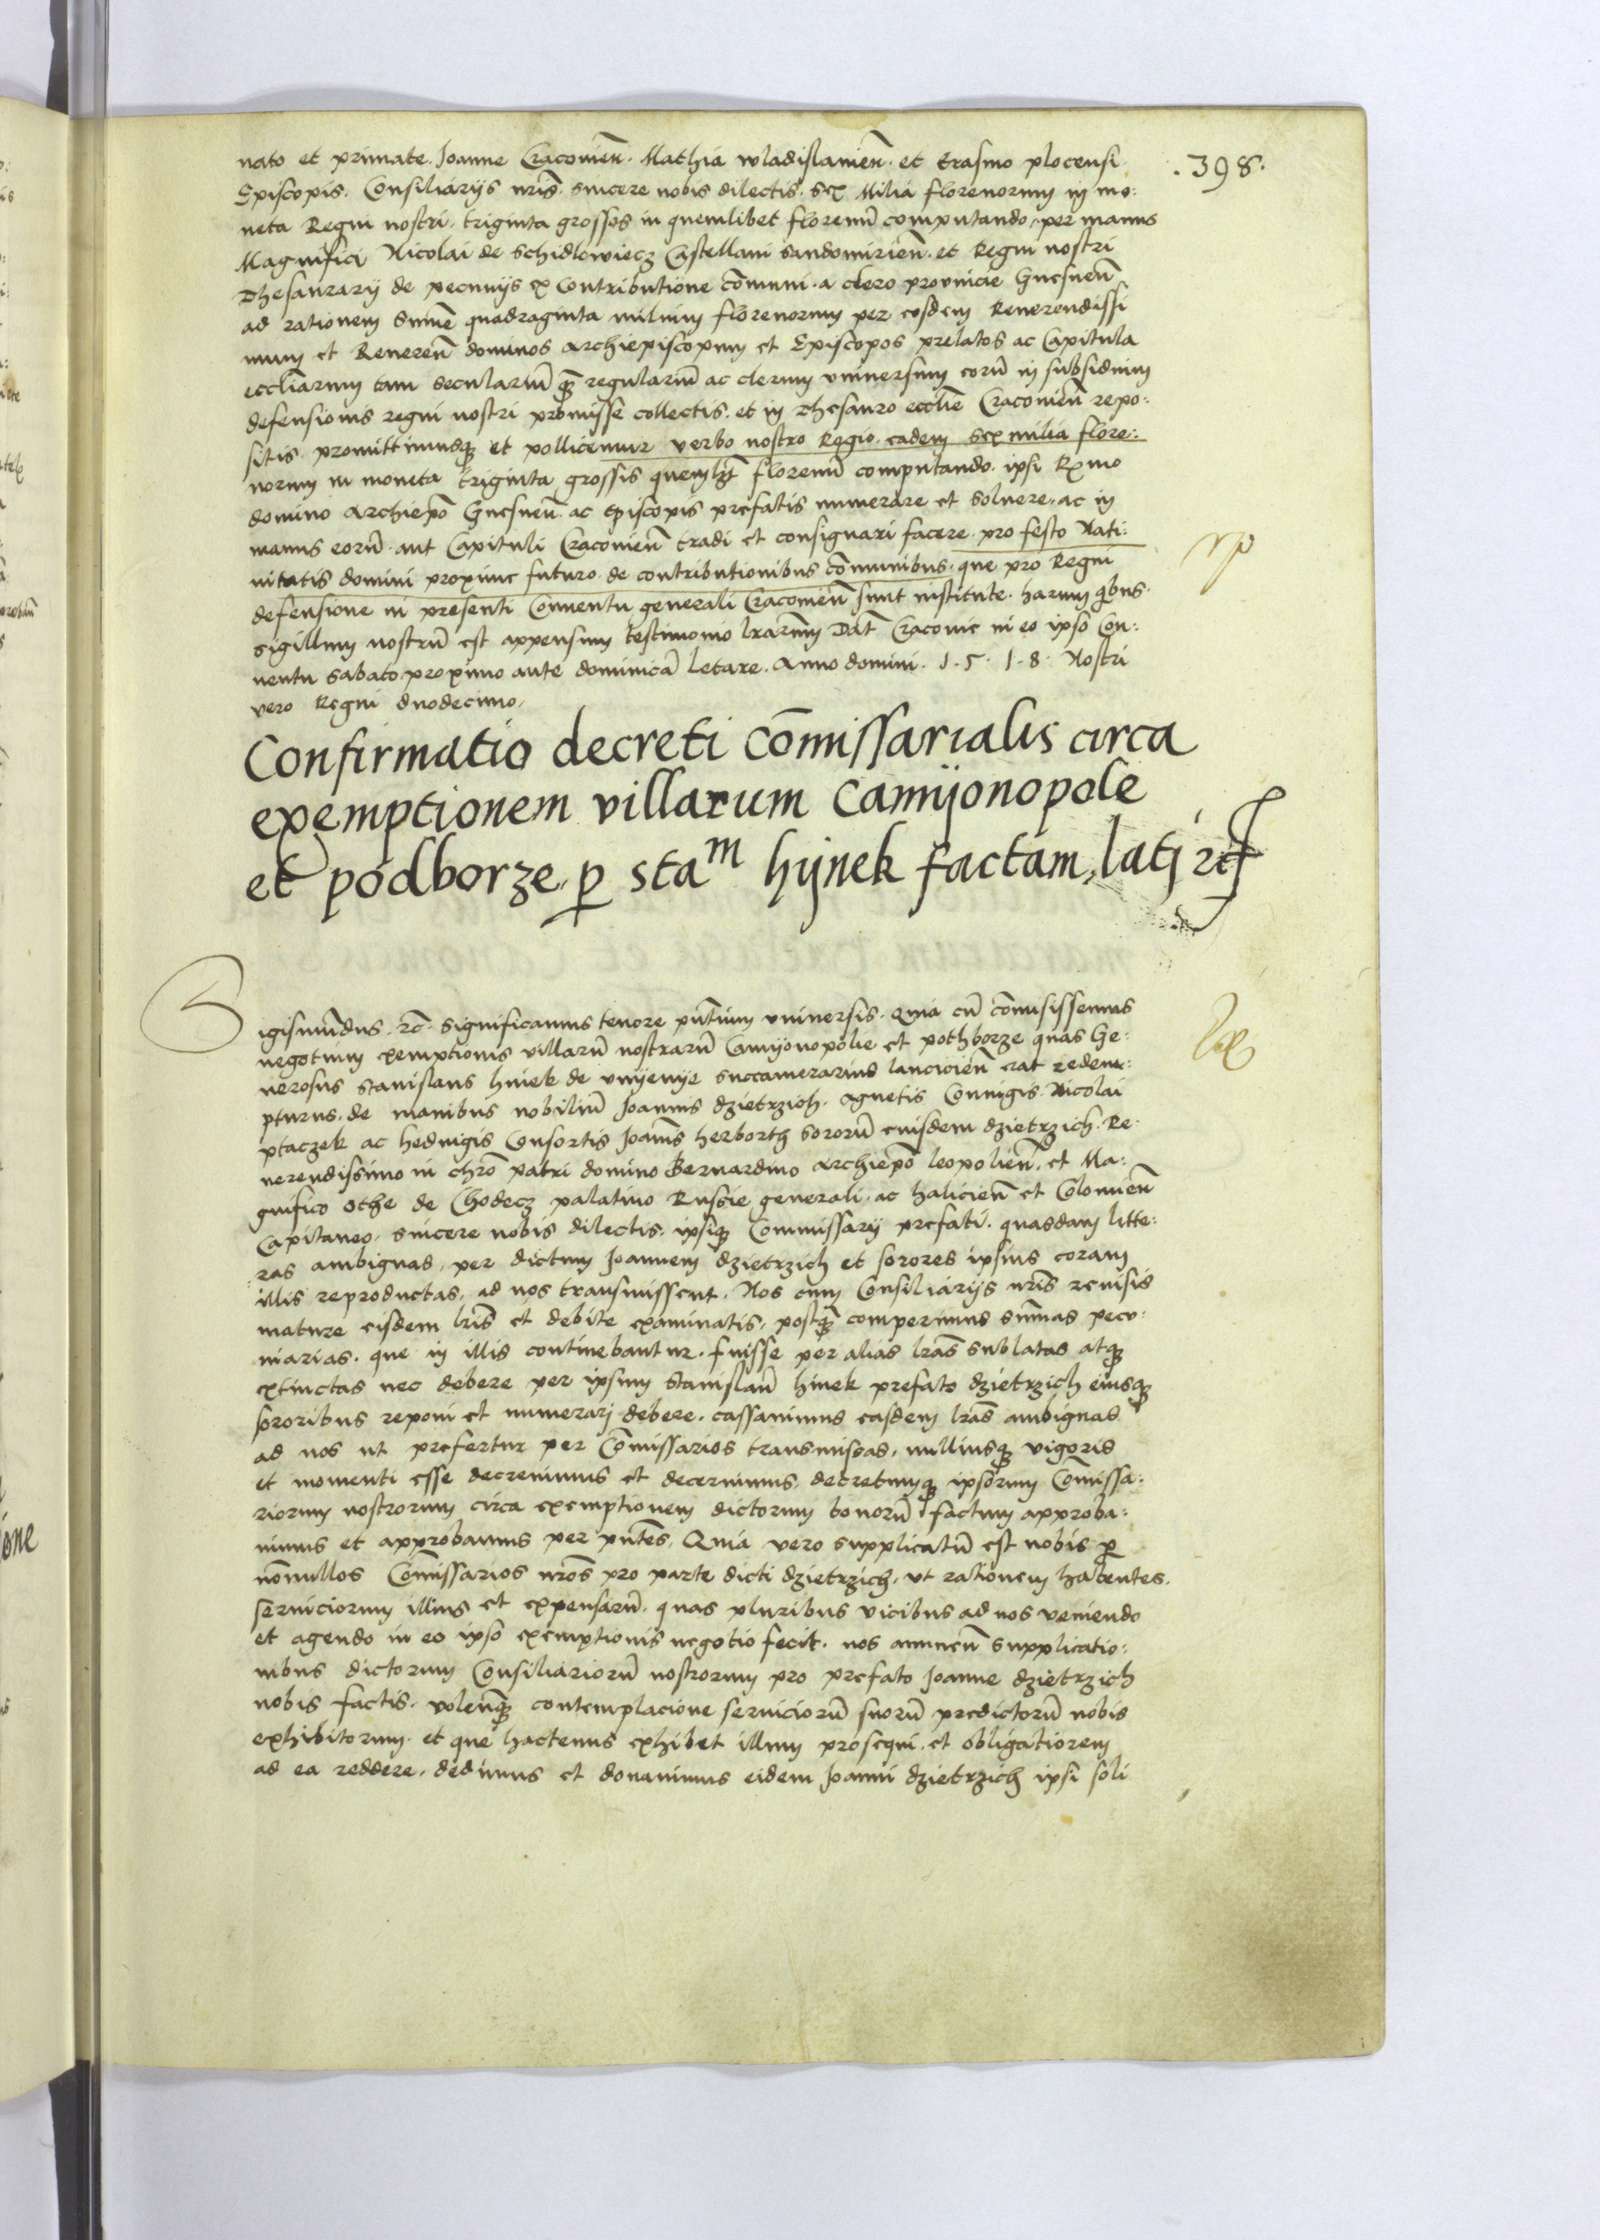 .398.
nato et primate. Joanne Cracovien̄. Mathia wladislavien̄. et Erasmo plocensi
Episcopis. Consiliarijs nr̄is. sincere nobis dilectis. sex Milia florenorum in mo:
neta Regni nostri. triginta grossos in quemlibet florenū computando. per manus
Magnifici Nicolai de Schidlowiecz Castellani Sandomirien̄. et Regni nostri
Thesaurarij de pecunijs ex Contributione com̄uni. a clero provincie Gnesnen̄
ad rationem Sum̄e quadraginta milium florenorum per eosdem Reverendissi
mum et Reveren̄ dominos Archiepiscopum et Episcopos prelatos ac Capitula
eccl̄iarum tam seculariū qꝫ regulariū ac clerum universum eorū in subsidium
defensionis regni nostri promisse collectis. et in Thesauro eccl̄ie Cracovien̄ repo:
sitis. promittimusqꝫ et pollicemur verbo nostro Regio. eadem sex milia flore:
norum in moneta triginta grossis quemlꝫt florenū computando. ipsi R̄mo
domino Archiep̄o Gnesnen̄. ac Episcopis prefatis numerare et solvere. ac in
manus eorū. aut Capituli Cracovien̄ tradi et consignari facere. pro festo Nati:
nitatis domini proxime futuro. de contributionibus com̄unibus. que pro Regni
defensione in presenti Conventu generali Cracovien̄ sunt institute. harum qbus.
sigillum nostrū est appensum testimonio lr̄arum Dat̄ Cracovie in eo ipso Con:
ventu Sabato proximo ante dominicā letare. Anno domini. 1.5.1.8. Nostri
vero Regni duodecimo.
Confirmatio decreti Com̄issarialis circa
exemptionem villarum Camijonopole
et podborze. ꝑ staᵐ hijnek factam, latj
Sigismundus. rc̄. significamus tenore pn̄tium universis. Quia cū com̄isissemus
negotium exemptionis villarū nostrarū Camijonopolie et pothborze quas Ge:
nerosus Stanislaus hinek de unijenije succamerarius lancicien̄ erat redem:
pturus. de manibus nobiliū Joannis dzietrzich. Agnetis Coniugis Nicolai
ptaczek ac hedvigis Consortis Joan̄is herborth sororū eiusdem dzietrzich. Re:
verendissimo in chr̄o patri domino Bernardino Archiep̄o leopolien̄. et Ma:
gnifico Othe de Chodecz palatino Russie generali. ac halicien̄ et Colomien̄
Capitaneo. sincere nobis dilectis. ipsiqꝫ Commissarij prefati. quasdam litte:
ras ambiguas. per dictum Joannem dzietrzich et sorores ipsius coram
illis reproductas. ad nos transmissent. Nos cum Consiliarijs nr̄is revisis
mature eisdem lr̄is et debite examinatis. postqꝫ comperimus sum̄as pecu:
niarias. que in illis continebantur. fuisse per alias lr̄as sublatas atqꝫ
extinctas nec debere per ipsum Stanislaū hinek prefato dzietrzich eiusqꝫ
sororibus reponi et numerarj debere. cassavimus easdem lr̄as ambiguas
ad nos ut prefertur per Com̄issarios transmissas. nulliusqꝫ vigoris
et momenti esse decrevimus et decernimus. decretumqꝫ ipsorum Com̄issa:
riorum nostrorum circa exemptionem dictorum bonorū factum approba:
vimus et approbamus per pn̄tes. Quia vero supplicatū est nobis ꝑ
non̄nullos Com̄issarios nr̄os pro parte dicti dzietrzich. ut rationem habentes.
serviciorum illius et expensarū. quas pluribus vicibus ad nos veniendo
et agendo in eo ipso exemptionis negotio fecit. nos annuen̄ supplicatio:
nibus dictorum Consiliariorū nostrorum pro prefato Joanne dzietrzich
nobis factis. volen̄qꝫ contemplacione serviciorū suorū predictorū nobis
exhibitorum. et que hactenus exhibet illum prosequi. et obligatiorem
ad ea reddere. dedimus et donavimus eidem Joanni dzietrzich ipsi soli